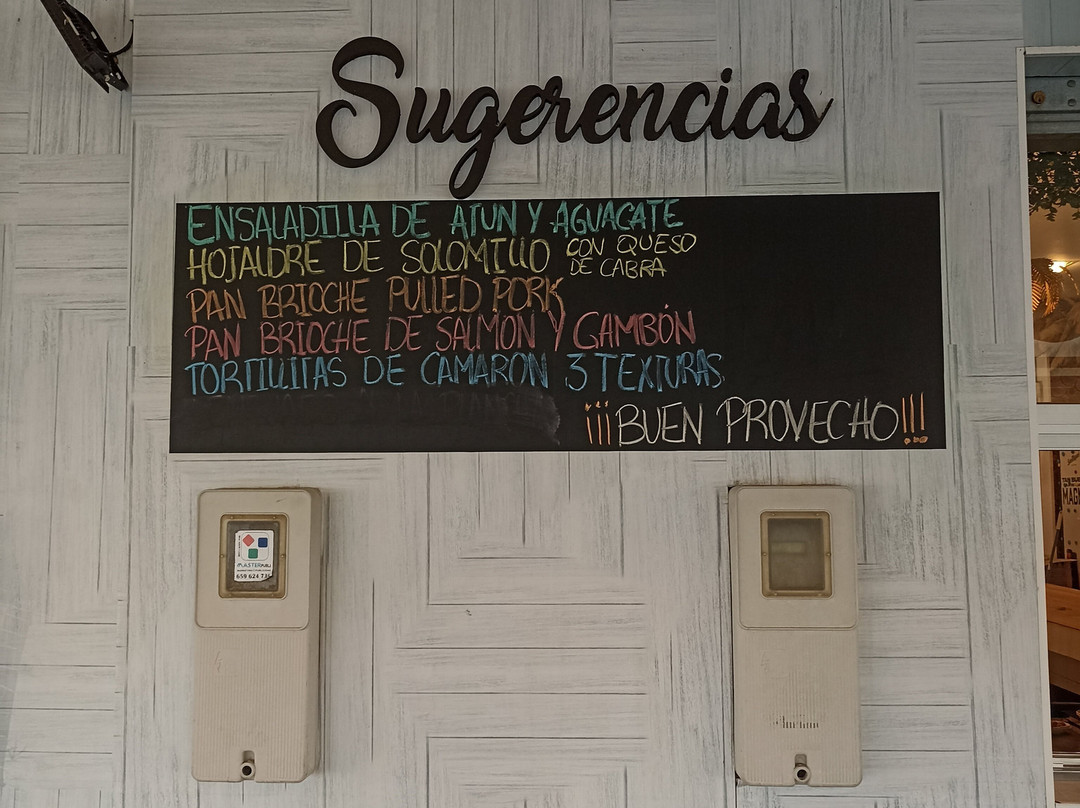 Sugerencias
ENSALADILLA DE ATUN Y AGUACATE
HOJALDRE DE SOLOMILLO CON QUESO
DE CABRA
PAN BRIOCHE PULLED PORK
PAN BRIOCHE DE SALMON Y GAMBÓN
TORTILLITAS DE CAMARON 3 TEXTURAS
¡¡¡BUEN PROVECHO!!!